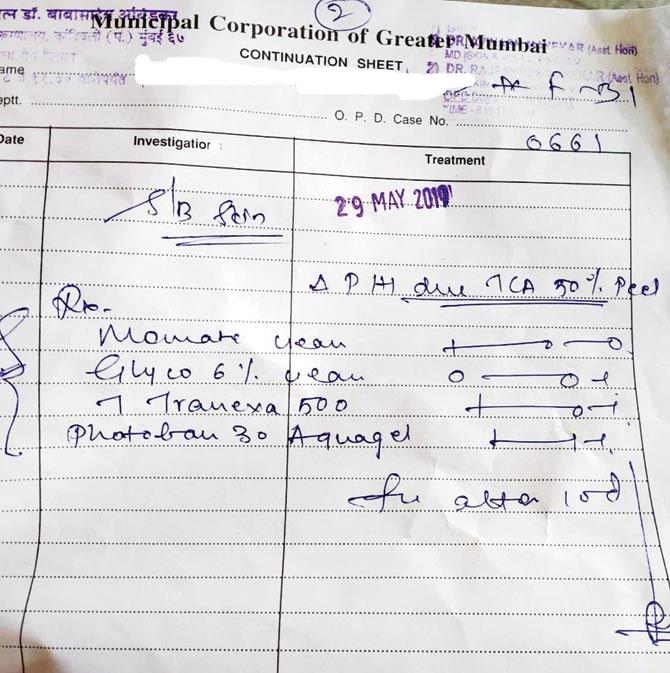 त्न डॉ. बाबासाहेब आंबेडकर
2
Municipal Corporation of Greater Mumbai
रुग्णालय, कांदिवली (प.) मुंबई ६७
CONTINUATION SHEET
(Asst. Hon)
2) DR. (Asst. Hon)
ame
F
eptt.
O. P. D. Case No.
0661
Date Investigation Treatment
S/B Skin
29 MAY 2019
Δ PIH due TCA 50% Peel
Rx.
Momate cream + o o
Glyco 6% cream o o +
T Tranexa 500 + o +
Photoban 30 Aquagel + + +
fu after 10d